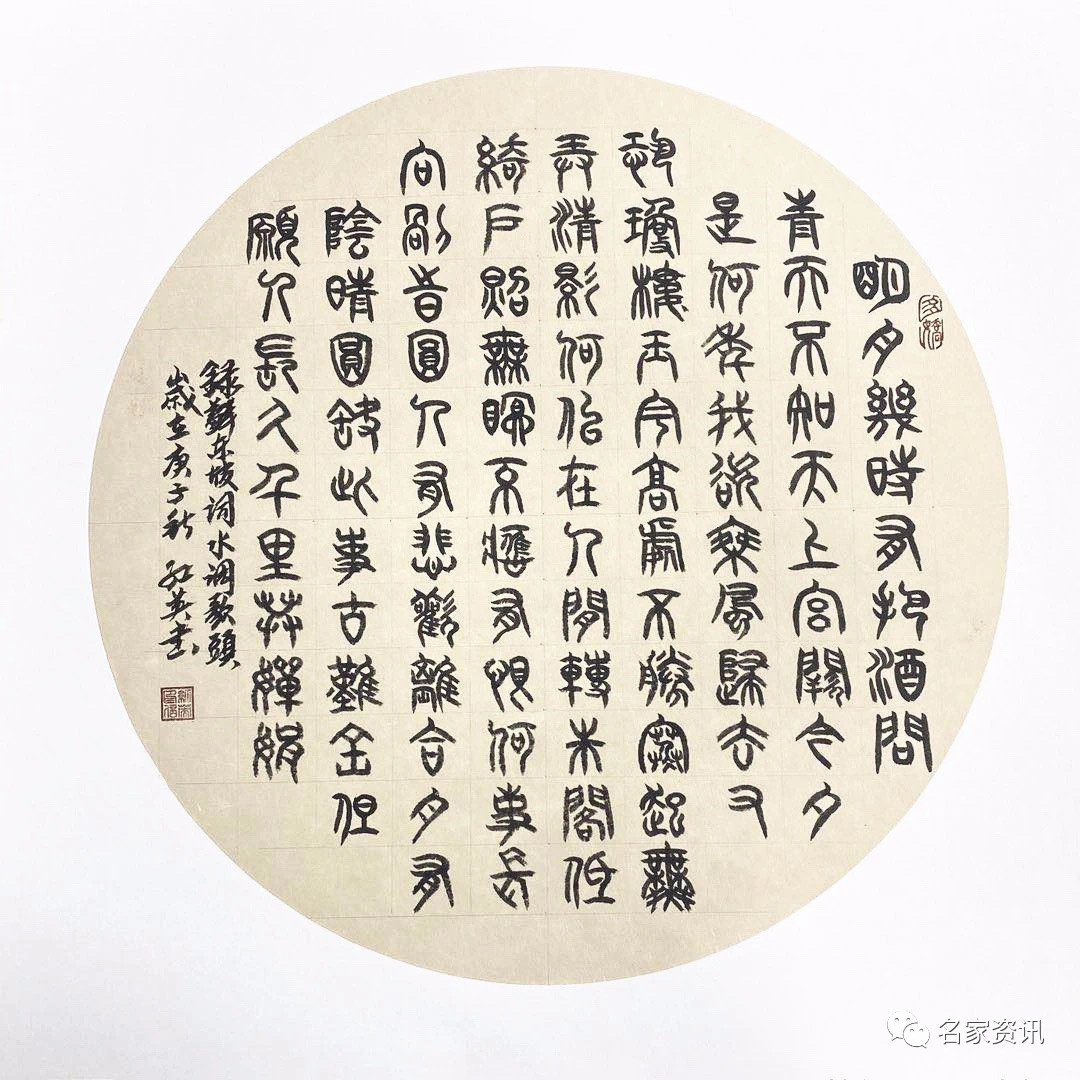 明月幾時有把酒問
青天不知天上宮闕今夕
是何年我欲乘風歸去又
恐瓊樓玉宇高處不勝寒起舞
弄清影何似在人間轉朱閣低
綺戶照無眠不應有恨何事長
向別時圓人有悲歡離合月有
陰晴圓缺此事古難全但
願人長久千里共嬋娟
錄蘇東坡詞水調歌頭
歲在庚子秋 紅英書
名家资讯